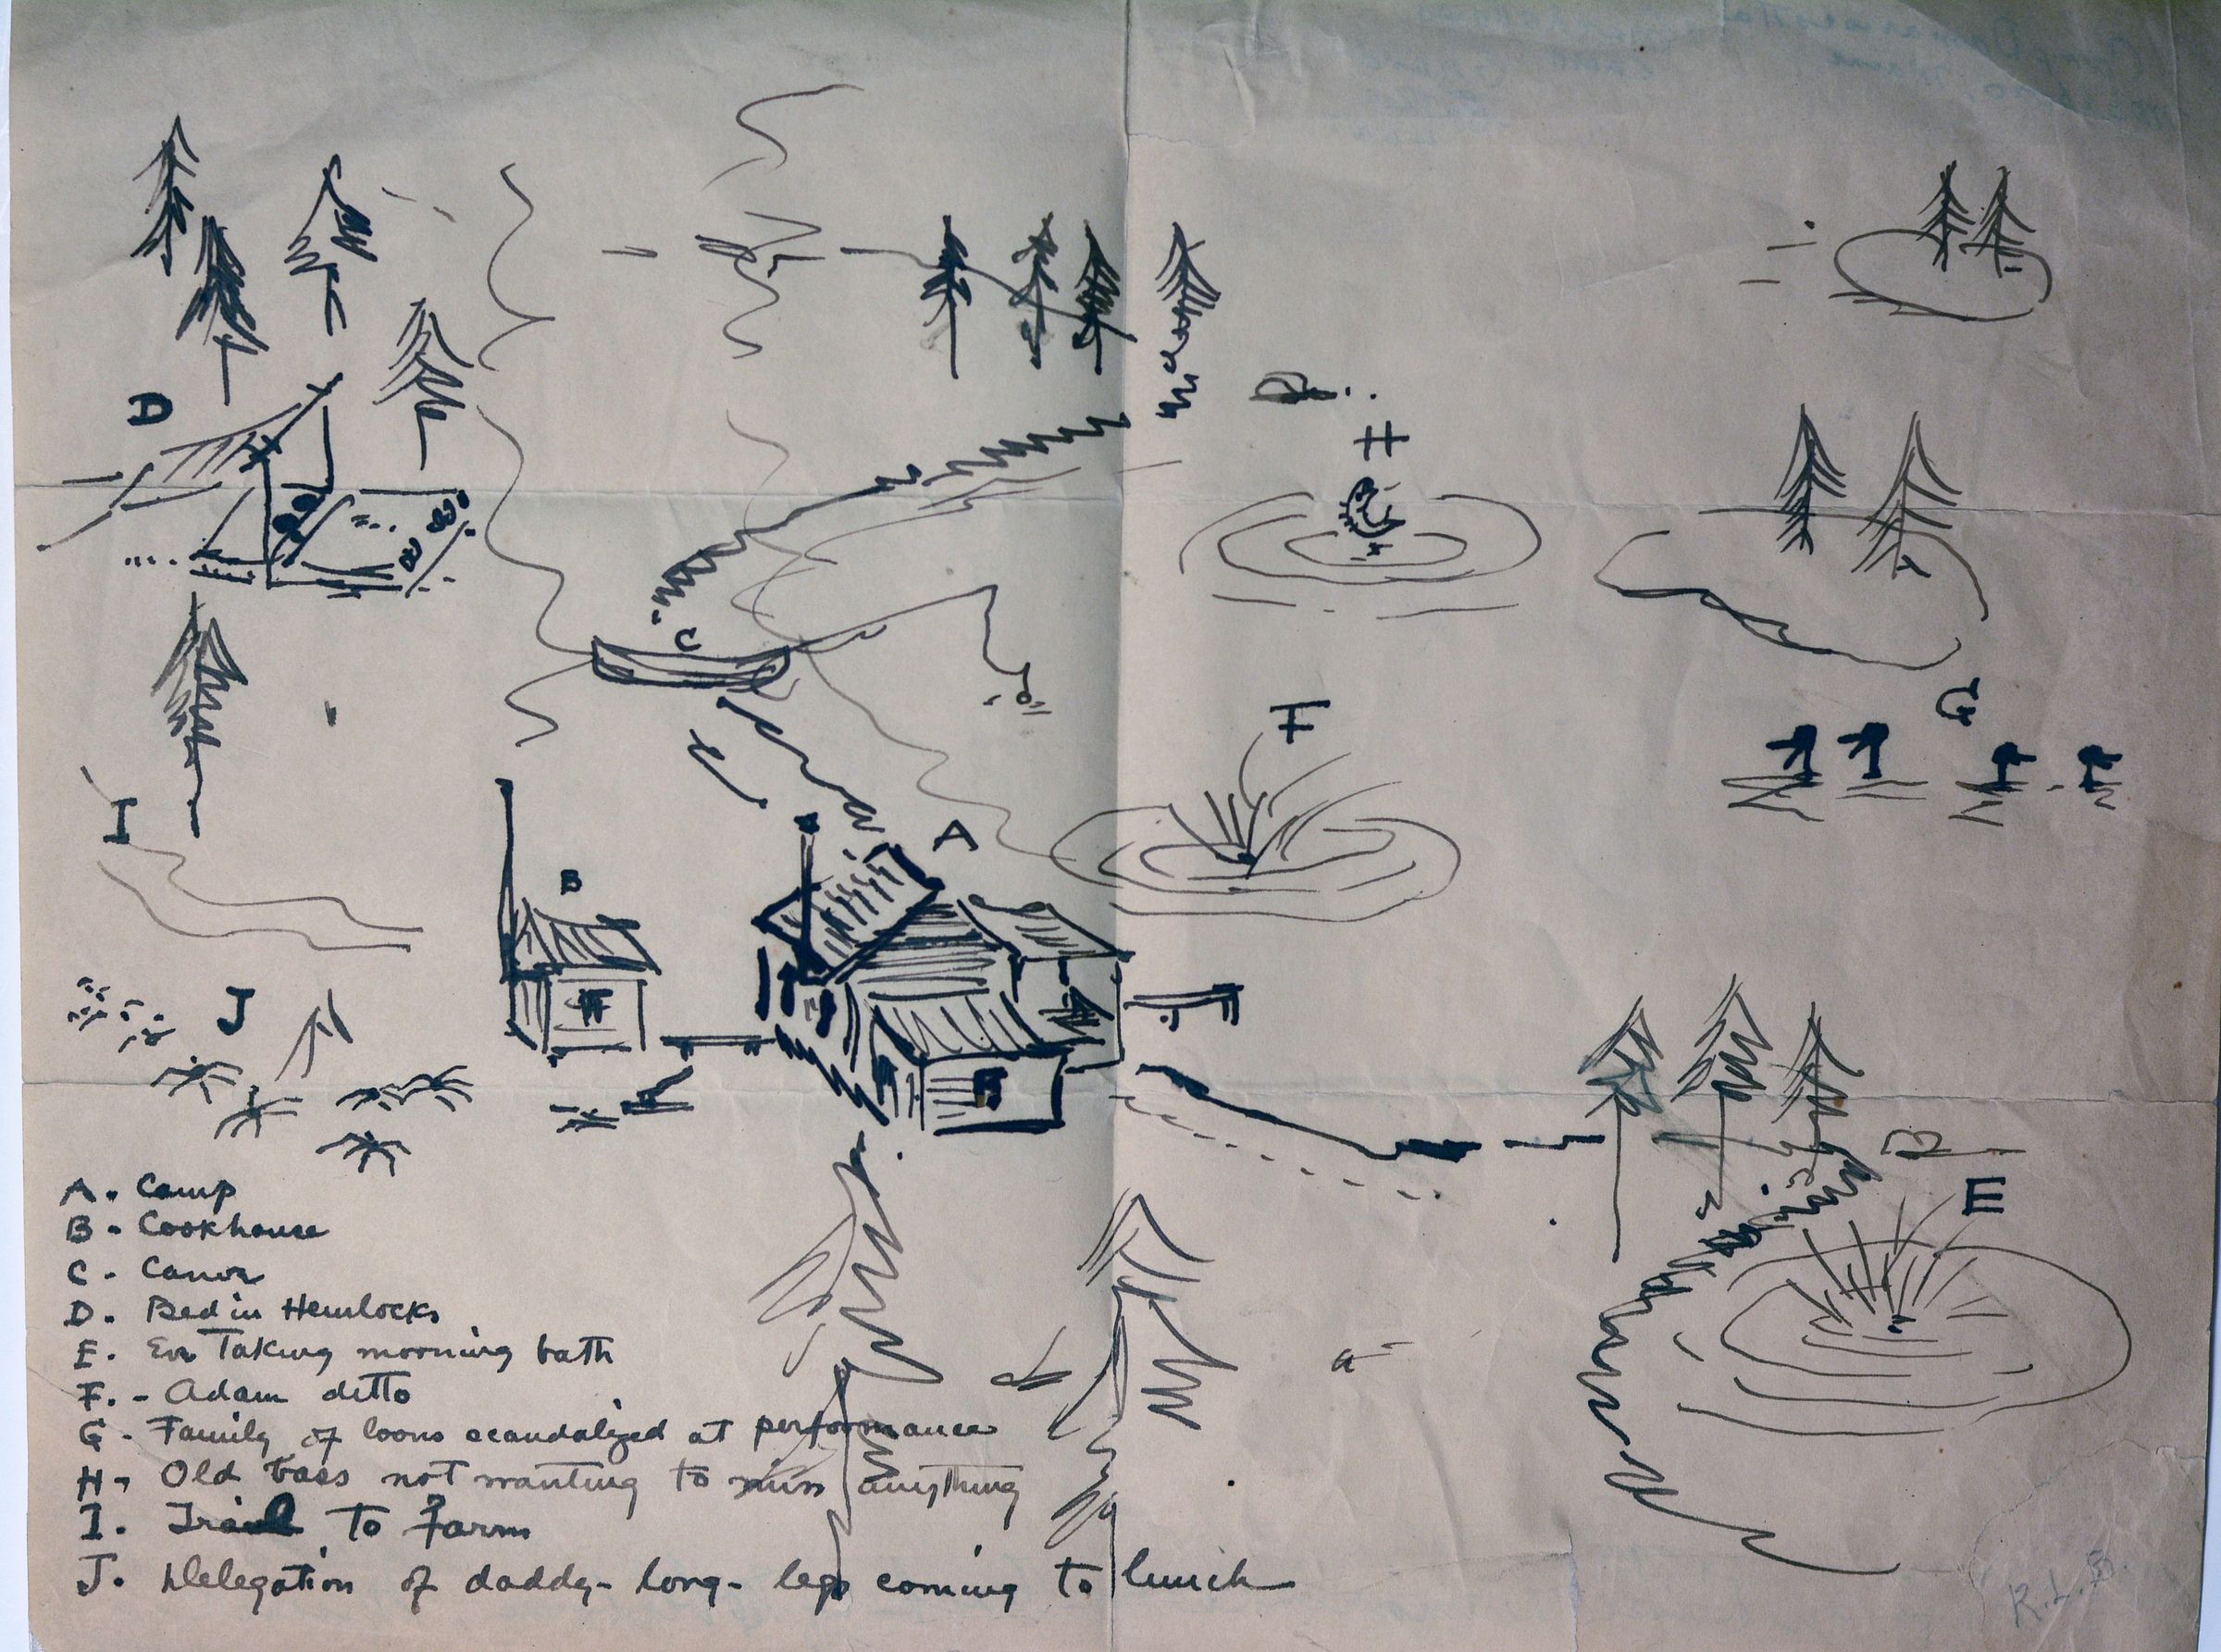 D
H
C
G
F
I
A
B
J
E
A. Camp
B - Cookhouse
C - Canoe
D. Bed in Hemlocks
E. Eve Taking morning bath
F. - Adam ditto
G - Family of loons scandalized at performance
H - Old bass not wanting to miss anything
I. Trail To Farm
J. Delegation of daddy-long-legs coming to lunch
R.L.B.